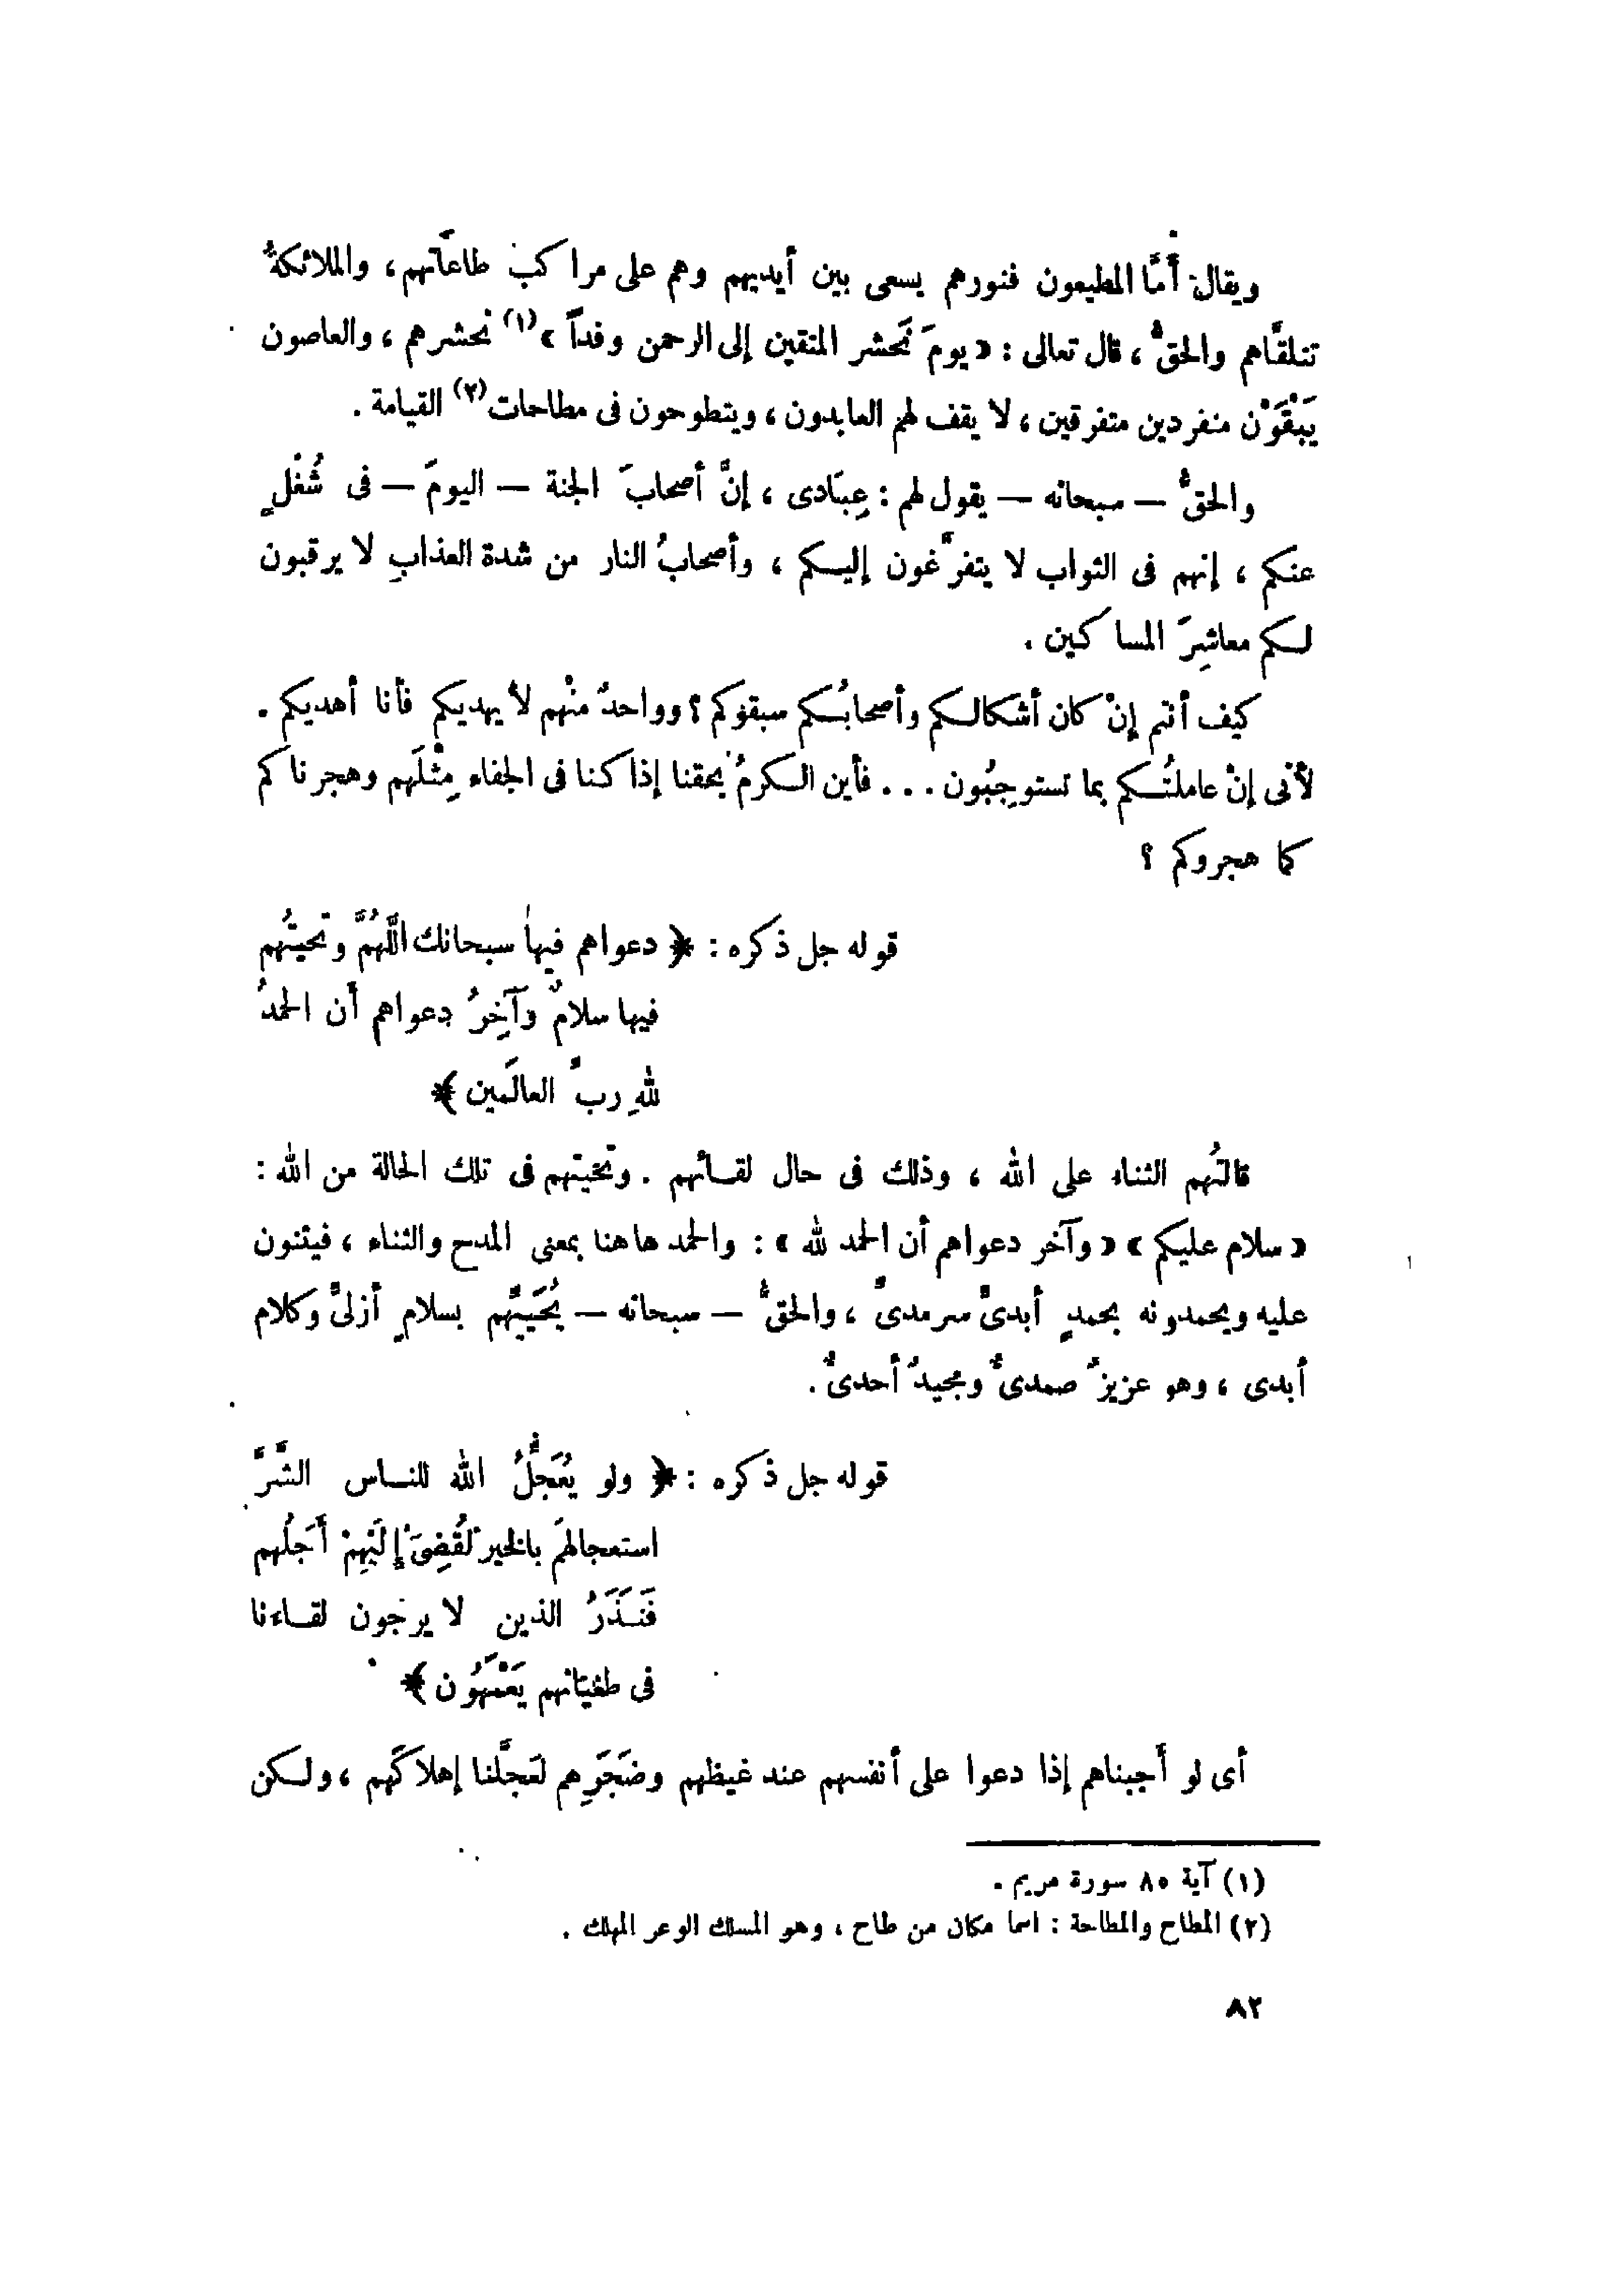 ويقال أَمَّا المطيعون فنورهم يسعى بين أيديهم وهم على مراكب طاعاتهم ، والملائكةُ
تتلقَّاهم والحقُّ ، قال تعالى : « يومَ نَحشر المتقين إلى الرحمن وفداً »(١) نحشرهم ، والعاصون
يَبْقَوْن منفردين متفرقين ، لا يقف لهم العابدون ، ويتطوحون فى مطاحات(٢) القيامة .
والحقُّ — سبحانه — يقول لهم : عِبَادى ، إنَّ أصحابَ الجنة — اليومَ — فى شُغْلٍ
عنكم ، إنهم فى الثواب لا يتفرَّغون إليكم ، وأصحابُ النار من شدة العذابِ لا يرقبون
لكم معاشِرَ المساكين .
كيف أنتم إنْ كان أشكالكم وأصحابُكم سبقوكم ؟ وواحدٌ منْهم لا يهديكم فأنا أهديكم .
لأنى إنْ عاملتُكم بما تستوجِبُون . . . فأين الكرمُ بحقنا إذا كنا فى الجفاء مِثْلَهم وهجرناكم
كما هجروكم ؟
قوله جل ذكره : ﴿ دعواهم فيها سبحانك اللَّهُمَّ وتحيتُهم
فيها سلامٌ وآخِرُ دعواهم أن الحمدُ
للهِ ربِّ العالَمين ﴾
قالتُهم الثناء على الله ، وذلك فى حال لقائهم . وتحيتهم فى تلك الحالة من الله :
« سلام عليكم » « وآخر دعواهم أن الحمد لله » : والحمد هاهنا بمعنى المدح والثناء ، فيثنون
عليه ويحمدونه بحمدٍ أبدىٍّ سرمدىٍّ ، والحقُّ — سبحانه — يُحَيِّيهم بسلامٍ أزلىٍّ وكلام
أبدى ، وهو عزيزٌ صمدىٌّ ومجيدٌ أحدىٌّ .
قوله جل ذكره : ﴿ ولو يُعَجِّلُ الله للناس الشَّرَّ
استعجالَهم بالخير لَقُضِىَ إِلَيْهِمْ أَجَلُهم
فَنَذَرُ الذين لا يرجون لقاءنا
فى طغيانهم يَعْمَهُون ﴾
أى لو أَجبناهم إذا دعوا على أنفسهم عند غيظهم وضَجَرِهم لعَجَّلنا إهلاكَهم ، ولكن
(١) آية ٨٥ سورة مريم .
(٢) المطاح والمطاحة : اسما مكان من طاح ، وهو المسلك الوعر المهلك .
٨٢